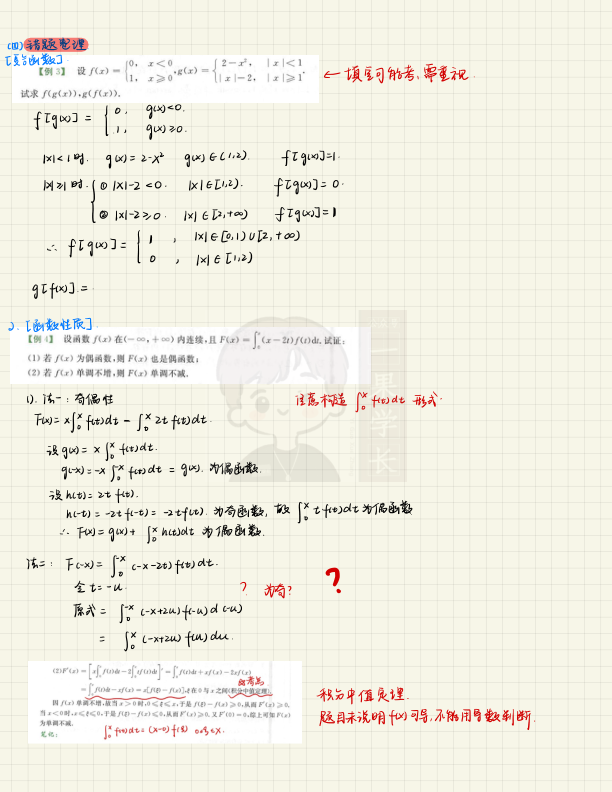 (四) 错题整理
[复合函数].
【例 3】 设 f(x) = { 0, x<0 1, x⩾0 , g(x) = { 2-x², |x|<1 |x|-2, |x|⩾1 .
← 填空可能考,需重视.
试求 f(g(x)),g(f(x)).
f[g(x)] = { 0, g(x)<0. 1, g(x)≥0.
|x|<1时. g(x)=2-x² g(x)∈(1,2). f[g(x)]=1.
|x|≥1时. { ① |x|-2<0. |x|∈[1,2). f[g(x)]=0.
② |x|-2≥0. |x|∈[2,+∞) f[g(x)]=1
∴ f[g(x)] = { 1 , |x|∈[0,1)∪[2,+∞)
0 , |x|∈[1,2)
g[f(x)] =
2. [函数性质].
【例 4】 设函数 f(x) 在(-∞,+∞) 内连续,且 F(x) = ∫₀ˣ (x-2t)f(t)dt. 试证:
(1) 若 f(x) 为偶函数,则 F(x) 也是偶函数;
(2) 若 f(x) 单调不增,则 F(x) 单调不减.
一果学长
1). 法一: 奇偶性
注意构造 ∫₀ˣ f(t)dt 形式.
F(x) = x∫₀ˣ f(t)dt - ∫₀ˣ 2t f(t)dt.
设 g(x) = x ∫₀ˣ f(t)dt.
g(-x) = -x ∫₀⁻ˣ f(t)dt = g(x). 为偶函数.
设 h(t) = 2t f(t).
h(-t) = -2t f(-t) = -2t f(t). 为奇函数, 故 ∫₀ˣ t f(t)dt 为偶函数
∴ F(x) = g(x) + ∫₀ˣ h(t)dt 为偶函数.
法二: F(-x) = ∫₀⁻ˣ (-x-2t) f(t)dt.
令 t=-u.
? 为奇? ?
原式 = ∫₀⁻ˣ (-x+2u) f(-u) d(-u)
= ∫₀ˣ (-x+2u) f(u) du.
(2)F'(x) = [x∫₀ˣ f(t)dt - 2∫₀ˣ tf(t)dt]' = ∫₀ˣ f(t)dt + xf(x) - 2xf(x)
= ∫₀ˣ f(t)dt - xf(x) = x[f(ξ) - f(x)],ξ 在 0 与 x 之间(积分中值定理).
积分中值定理.
因 f(x) 单调不增,故当 x>0 时,0⩽ξ⩽x,于是 f(ξ)-f(x)⩾0,从而 F'(x)⩾0.
题目未说明f(x)可导,不能用导数判断.
当 x<0 时,x⩽ξ⩽0,于是 f(ξ)-f(x)⩽0,从而 F'(x)⩾0. 又 F'(0)=0,综上可知 F(x)
为单调不减.
笔记:
∫₀ˣ f(t)dt = (x-0) f(ξ) 0≤ξ≤x.